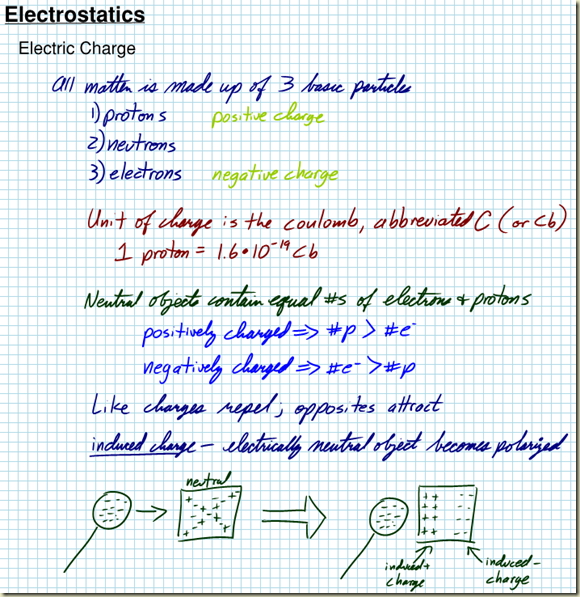 Electrostatics
Electric Charge
All matter is made up of 3 basic particles
1) protons positive charge
2) neutrons
3) electrons negative charge
Unit of charge is the coulomb, abbreviated C (or Cb)
1 proton = 1.6•10⁻¹⁹ Cb
Neutral objects contain equal #s of electrons + protons
positively charged => #p > #e⁻
negatively charged => #e⁻ > #p
Like charges repel; opposites attract
induced charge – electrically neutral object becomes polarized
neutral
induced + charge
induced – charge